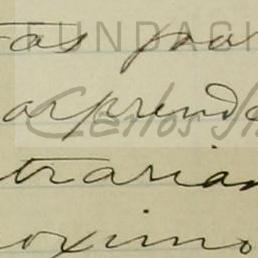 FUNDACI
tas por
orprende
Carlos
trarian
oximo